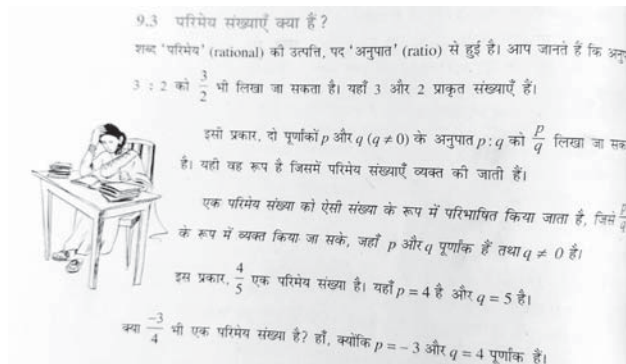 9.3 परिमेय संख्याएँ क्या हैं?
शब्द 'परिमेय' (rational) की उत्पत्ति, पद 'अनुपात' (ratio) से हुई है। आप जानते हैं कि
3 : 2 को 3/2 भी लिखा जा सकता है। यहाँ 3 और 2 प्राकृत संख्याएँ हैं।
इसी प्रकार, दो पूर्णांकों p और q (q ≠ 0) के अनुपात p : q को p/q लिखा जा
है। यही वह रूप है जिसमें परिमेय संख्याएँ व्यक्त की जाती हैं।
एक परिमेय संख्या को ऐसी संख्या के रूप में परिभाषित किया जाता है, जिसे p/q
के रूप में व्यक्त किया जा सके, जहाँ p और q पूर्णांक हैं तथा q ≠ 0 है।
इस प्रकार, 4/5 एक परिमेय संख्या है। यहाँ p = 4 है और q = 5 है।
क्या -3/4 भी एक परिमेय संख्या है? हाँ, क्योंकि p = – 3 और q = 4 पूर्णांक हैं।